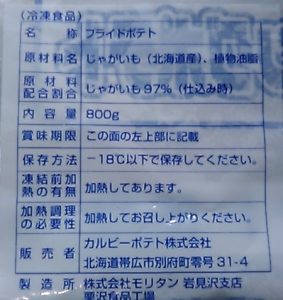 (冷凍食品)
名称 フライドポテト
原材料名 じゃがいも(北海道産)、植物油脂
原材料配合割合 じゃがいも97%(仕込み時)
内容量 800g
賞味期限 この面の左上部に記載
保存方法 −18℃以下で保存してください。
凍結前加熱の有無 加熱してあります。
加熱調理の必要性 加熱してお召し上がりください。
販売者 カルビーポテト株式会社
北海道帯広市別府町零号31-4
製造所 株式会社モリタン 岩見沢支店
栗沢食品工場